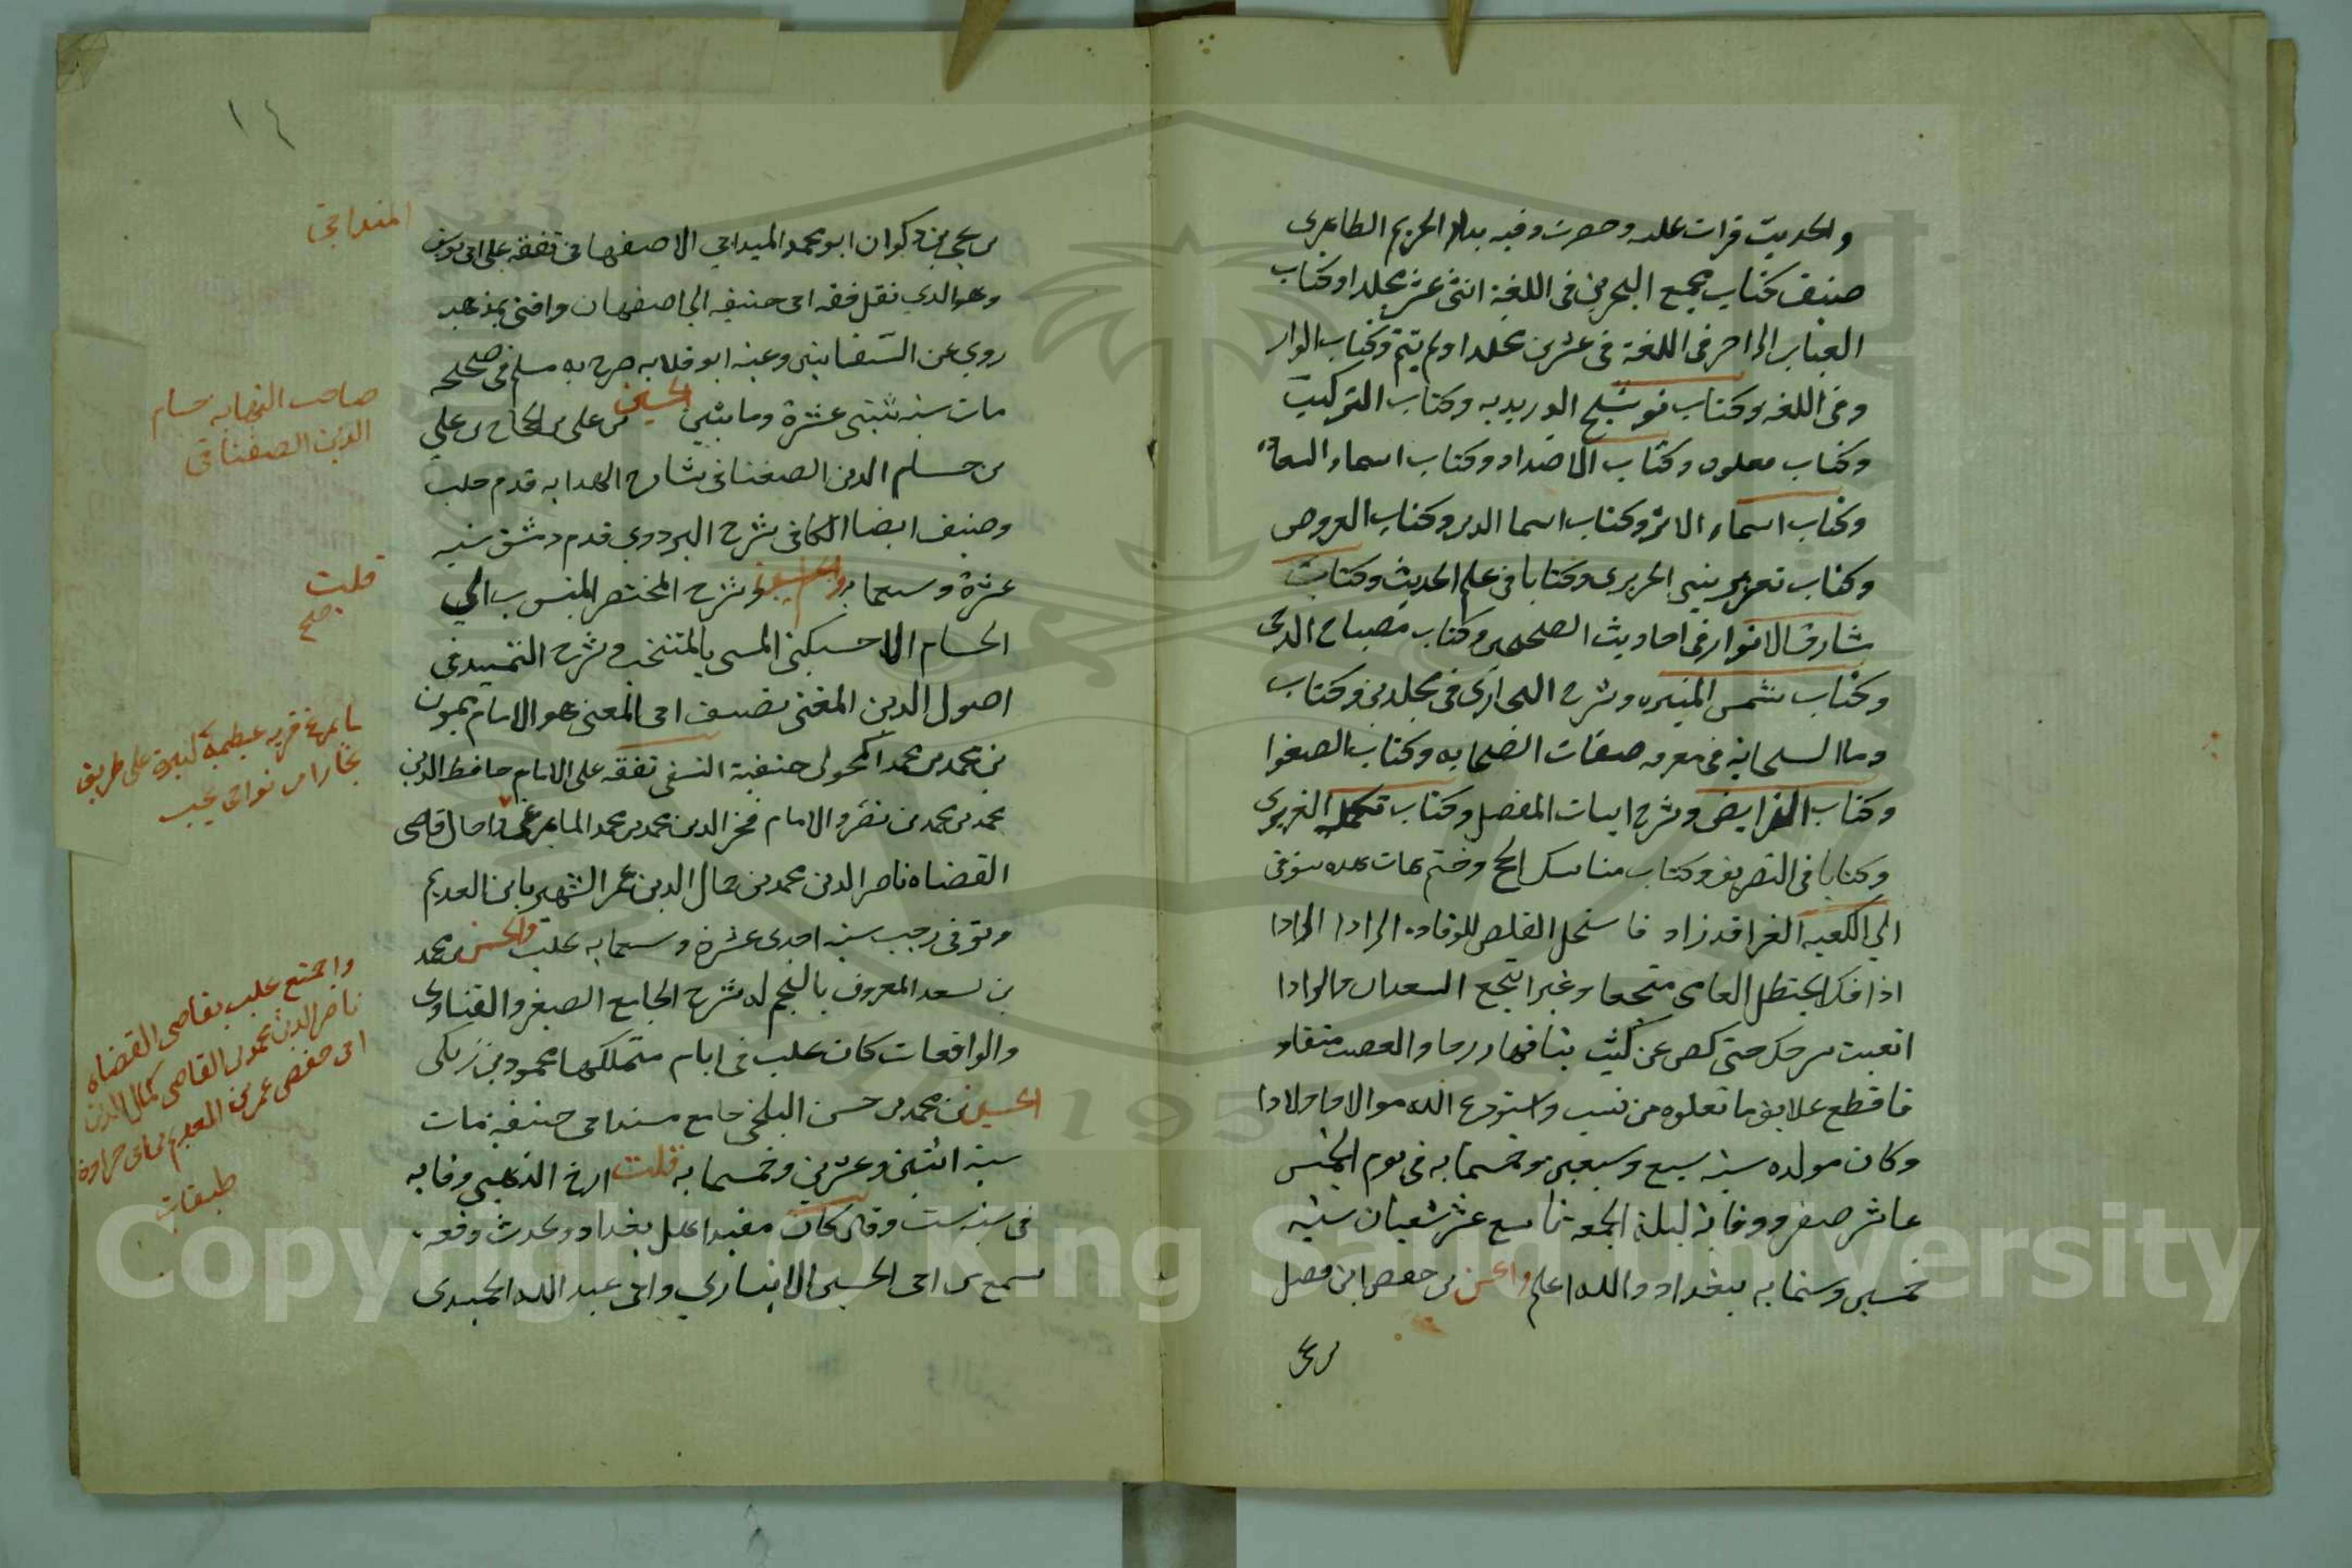 والحديث قرات عليه وحضرت دفنه بدار الحريم الطاهرى
صنف كتاب مجمع البحرين فى اللغة اثنى عشر مجلدا وكتاب
العباب الزاخر فى اللغة فى عشرين مجلدا ولم يتم وكتاب الوار
وفى اللغه وكتاب توشيح الدريديه وكتاب التركيب
وكتاب فعلان وكتاب الاضداد وكتاب اسماء السعاة
وكتاب اسماء الاسد وكتاب اسما الذيب وكتاب العروض
وكتاب تعزير بيتى الحريرى وكتابا فى علم الحديث وكتاب
شارق الانوار فى احاديث الصحيحين وكتاب مصباح الدجى
وكتاب شمس المنيره وشرح البخارى فى مجلدين وكتاب
السحابه فى معرفه صفات الصحابه وكتاب الصعفا
وكتاب الفرايض وشرح ابيات المفصل وكتاب تكمله العزيزى
وكتابا فى التصريف وكتاب مناسك الحج وختم بابيات
الى الكعبه الغرا قد زاد فا ستحمل القلص للوفاده الزادا
اذا فكر الحنظل العامى منتجعا وغيرا ينتجع السعدان والرادا
اتعبت سرحك حتى كص عن كثب نياقها رزما والصعب منقادا
فاقطع علايق ما تعلوه من نسب واستودع الله موالا واولادا
وكان مولده سنه سبع وسبعين وخمسمايه فى يوم الخميس
عاشر صفر ووفاته ليلة الجمعه تاسع عشر شعبان سنه
خمسين وستمايه ببغداد والله اعلم والحسن بن حفص ابن فضل
بن يحى
١٤
بن يحيى بن ذكوان ابو محمد الميداجى الاصفهانى تفقه على ابى يوسف
وهو الذي نقل فقه ابى حنيفه الى اصفهان وافتى بمذهبه
روى عن السفيانين وعنه ابو قلابه خرج له مسلم فى صحيحه
مات سنه ثنتى عشرة ومايتين الحسين بن على بن الحجاج بن علي
بن حسام الدين الصغناقى شارح الهدايه قدم حلب
وصنف ايضا الكافى شرح البزدوي قدم دمشق سنه
عشرة وسبعمايه وشرح المختصر المنسوب الى
الحسام الاخسيكتى المسمى بالمنتخب وشرح التمهيد فى
اصول الدين المغنى تصنيف ابى المعين هو الامام ميمون
بن محمد بن محمد المكحولى حنفية النسفى تفقه على الامام حافظ الدين
محمد بن محمد بن نصر والامام فخر الدين محمد بن محمد المايمرغى واجاز قاضى
القضاه ناصر الدين محمد بن كمال الدين عمر الشهير بابن العديم
وتوفى رجب سنه احدى عشرة وسبعمايه بحلب والحسن بن محمد
بن اسعد المعروف بالنجم له شرح الجامع الصغير والفتاوى
والواقعات كان بحلب فى ايام متملكها محمود بن زنكى
الحسين بن محمد بن حسن البلخى جامع مسند ابى حنيفه مات
سنه اثنين وعشرين وخمسمايه قلت ارخ الذهبى وفاته
فى سنه ست وقال كان مفيد اهل بغداد ومحدث وقته
سمع من ابى الحسين الانبارى وابى عبد الله الحميدى
الميداجى
صاحب النهايه حسام
الدين الصغناقى
قلت
صح
مايمرغ قريه عظيمه كبيرة على طريق
بخارا من نواحى نخشب
واجتمع بحلب بقاضى القضاه
ناصر الدين محمد بن القاضى كمال الدين
ابى حفص عمر بن العديم بن ابى جرادة
طبقات
Copyright © King Saud University
1957